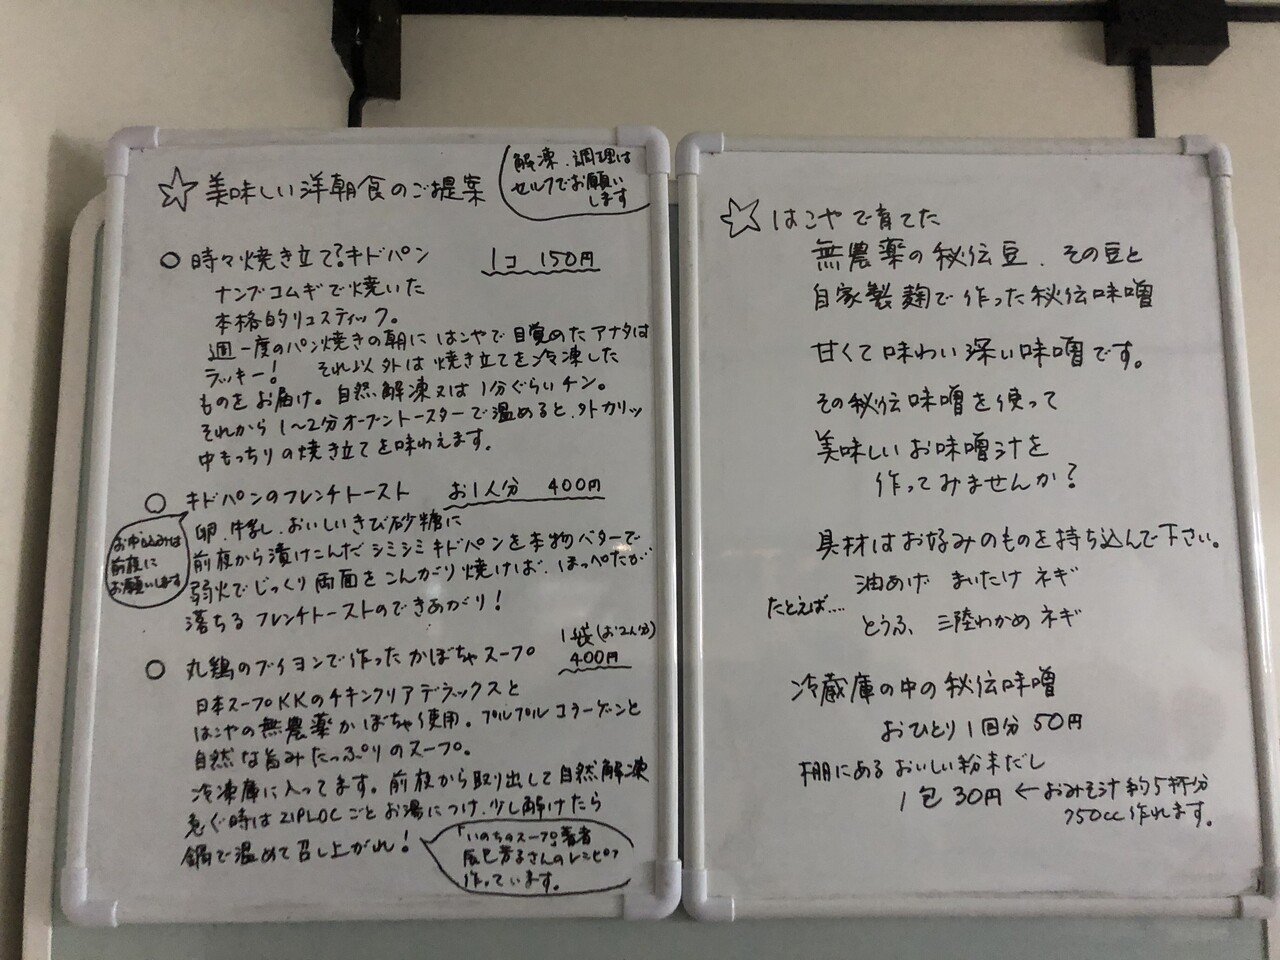 ☆ 美味しい洋朝食のご提案
解凍、調理は
セルフでお願い
します
○ 時々焼き立て?キドパン 1コ 150円
ナンブコムギで焼いた
本格的リュスティック。
週一度のパン焼きの朝に はこやで目覚めたアナタは
ラッキー! それ以外は焼き立てを冷凍した
ものをお届け。自然解凍又は1分ぐらいチン。
それから1〜2分オーブントースターで温めると、外カリッ
中もっちりの焼き立てを味わえます。
○ キドパンのフレンチトースト お1人分 400円
お申し込みは
前夜に
お願いします
卵、牛乳、おいしいきび砂糖に
前夜から漬けこんだシミシミキドパンを本物バターで
弱火でじっくり両面をこんがり焼けば、ほっぺたが
落ちるフレンチトーストのできあがり!
○ 丸鶏のブイヨンで作ったかぼちゃスープ 1袋(お2人分) 400円
日本スープKKのチキンクリアデラックスと
はこやの無農薬かぼちゃ使用。プルプルコラーゲンと
自然な旨みたっぷりのスープ。
冷凍庫に入ってます。前夜から取り出して自然解凍
急ぐ時はZIPLOCごとお湯につけ、少し解けたら
鍋で温めて召し上がれ!
「いのちのスープ」著者
辰巳芳子さんのレシピで
作っています。
☆ はこやで育てた
無農薬の秘伝豆、その豆と
自家製麹で作った秘伝味噌
甘くて味わい深い味噌です。
その秘伝味噌を使って
美味しいお味噌汁を
作ってみませんか?
具材はお好みのものを持ち込んで下さい。
油あげ まいたけ ネギ
たとえば....
とうふ、三陸わかめ ネギ
冷蔵庫の中の秘伝味噌
おひとり1回分 50円
棚にあるおいしい粉末だし
1包30円 ←おみそ汁約5杯分
750cc作れます。